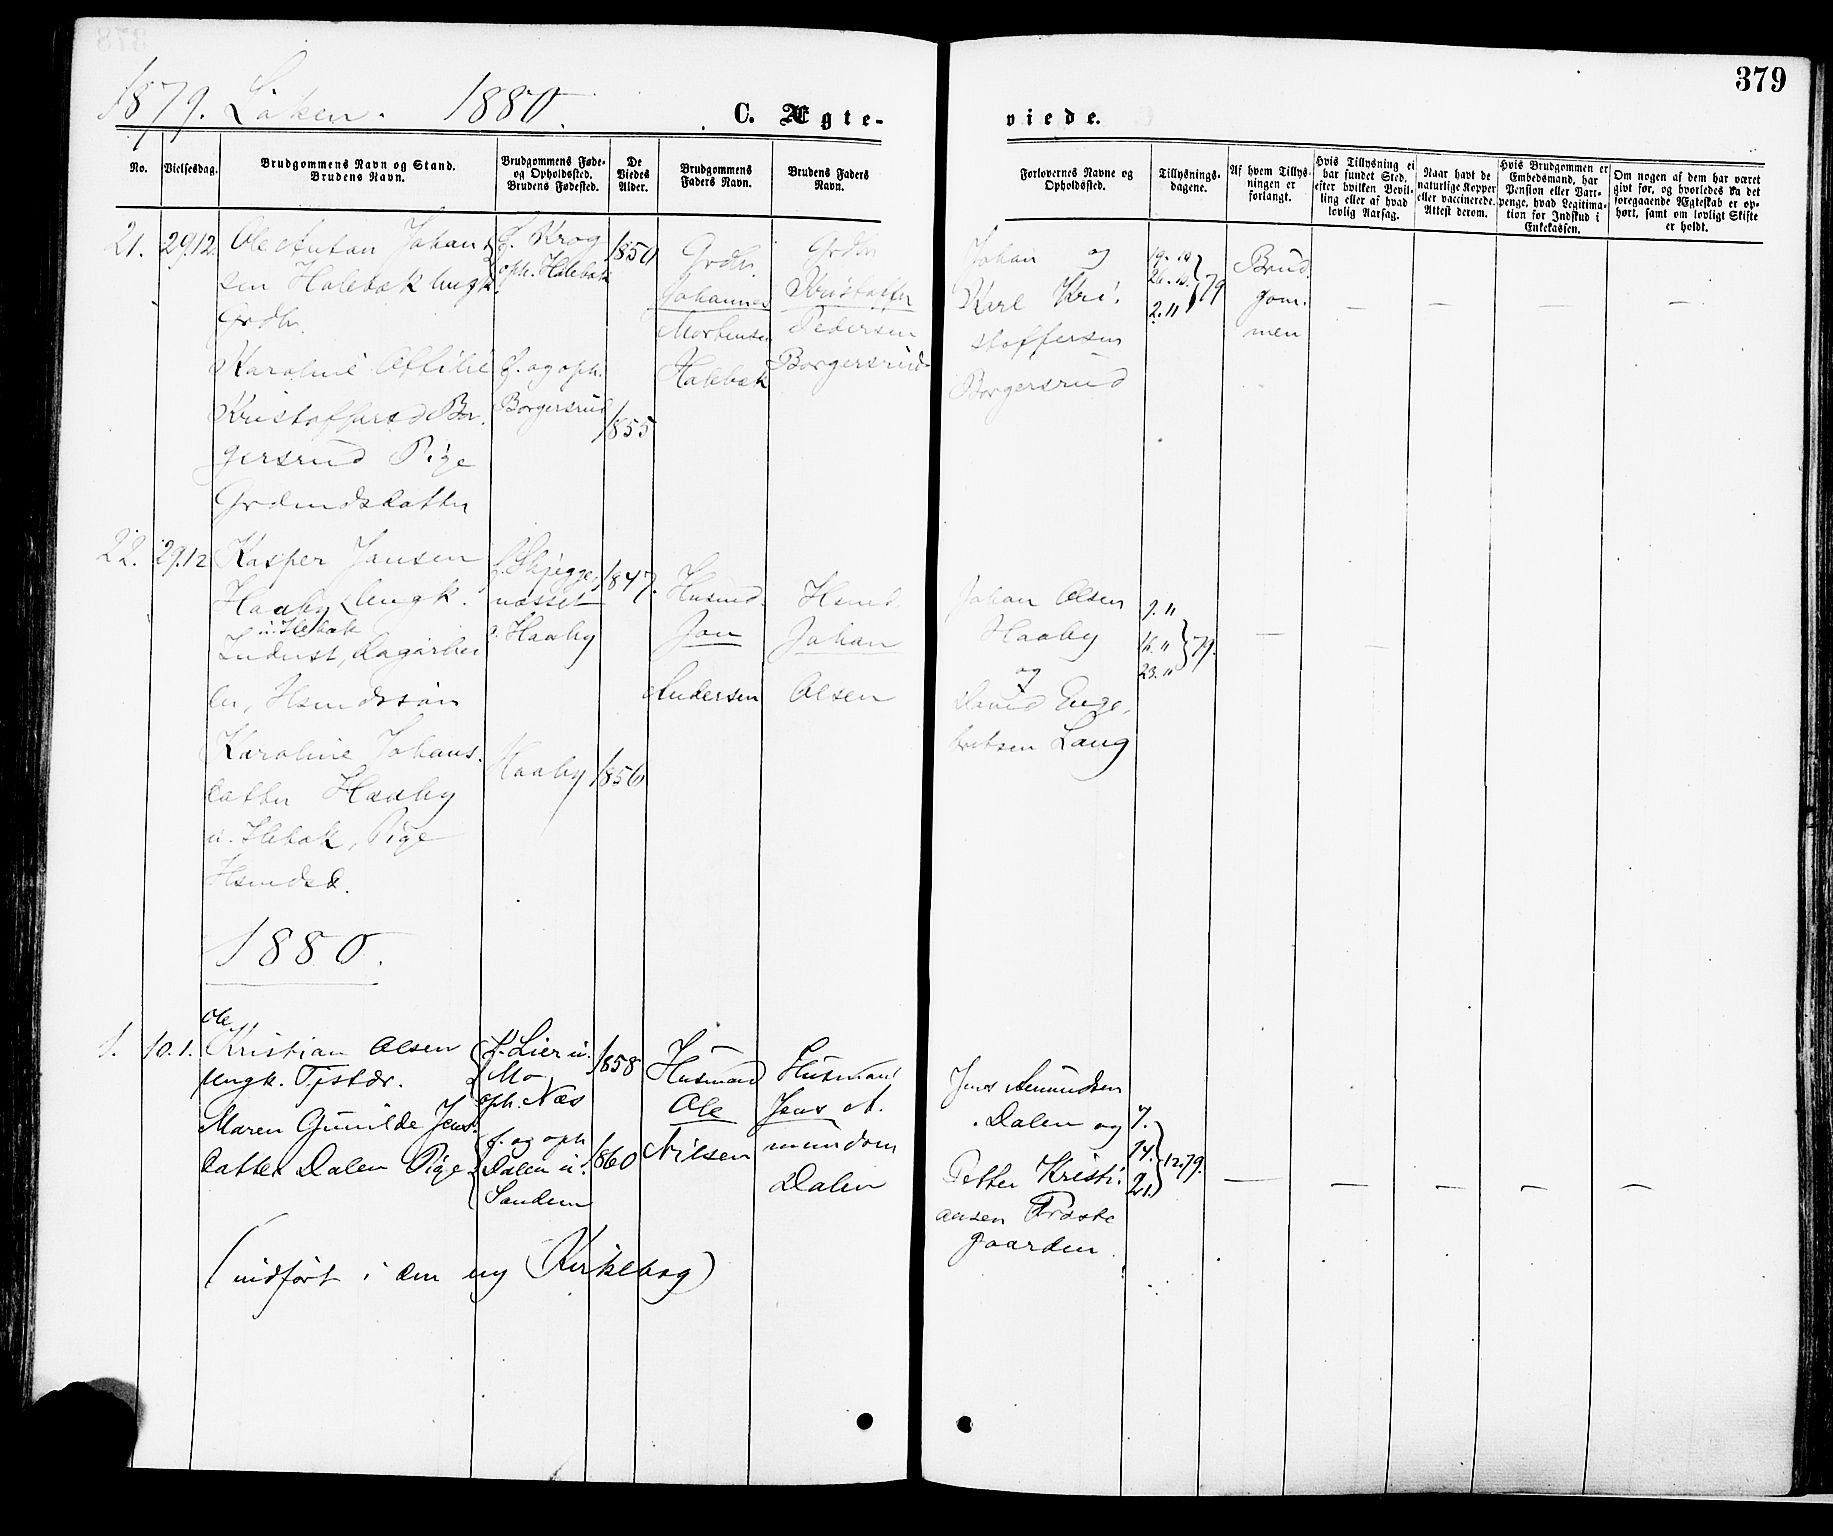 379
1879. Løken. 1880.
C. Ægte-
viede.
No.
Vielsesdag.
Brudgommens Navn og Stand.
Brudens Navn.
Brudgommens Føde-
og Opholdssted.
Brudens Fødested.
De
Viedes
Alder.
Brudgommens
Faders Navn.
Brudens Faders
Navn.
Forlovernes Navne og
Opholdssted.
Tillysnings-
dagene.
Af hvem Tillys-
ningen er
forlangt.
Hvis Tillysning ei
har fundet Sted,
efter hvilken Bevil-
ling eller af hvad
lovlig Aarsag.
Naar havt de
naturlige Kopper
eller vaccinerede.
Attest derom.
Hvis Brudgommen er
Embedsmand, har
Pension eller Vart-
penge, hvad Legitima-
tion for Indskud i
Enkekassen.
Om nogen af dem har været
gift før, og hvorledes da det
foregaaende Ægteskab er op-
hørt, samt om lovligt Skifte
er holdt.
21.
29.12.
Ole Anton Johan
sen Holebæk Ungk.
Grdbr.
Karoline Ottilie
Kristoffersd Bor-
gersrud Pige
Grdmdsdatter
f. Krog
oph. Holebæk
f. og oph.
Borgersrud
1850
1855
Grdbr.
Johannes
Mortensen
Holebæk
Grdbr
Kristoffer
Pedersen
Borgersrud
Johan og
Karl Kri-
stoffersen
Borgersrud
19.10
26.10
2.11
79
Brud
gom-
men
22.
29.12
Kasper Jansen
Haaby Ungk.
u. Ilebæk
Inderst, Dagarbei
der, Hsmdssøn
Karoline Johans-
datter Haaby
u. Ilebæk, Pige
Hsmdsd.
f. Skjegge-
næsset
o. Haaby
Haaby
1847.
1856
Husmd.
Jan
Andersen
Hsmd.
Johan
Olsen
Johan Olsen
Haaby
og
David Enge-
bretsen Lang
9.11
16.11
23.11
79.
1880.
1.
10.1.
Ole
Kristian Olsen
Ungk. Tjstdr.
Maren Gunilde Jens-
datter Dalen Pige
f. Lier u.
Mo
oph. Næs
f. og oph
Dalen u.
Sandem
1858
1860
Husmand
Ole
Nilsen
Husmand
Jens A-
mundsen
Dalen
Jens Amundsen
Dalen og
Petter Kristi-
ansen Præste
gaarden.
7.
14.
21.
12.79.
(indført i den ny Kirkebog)